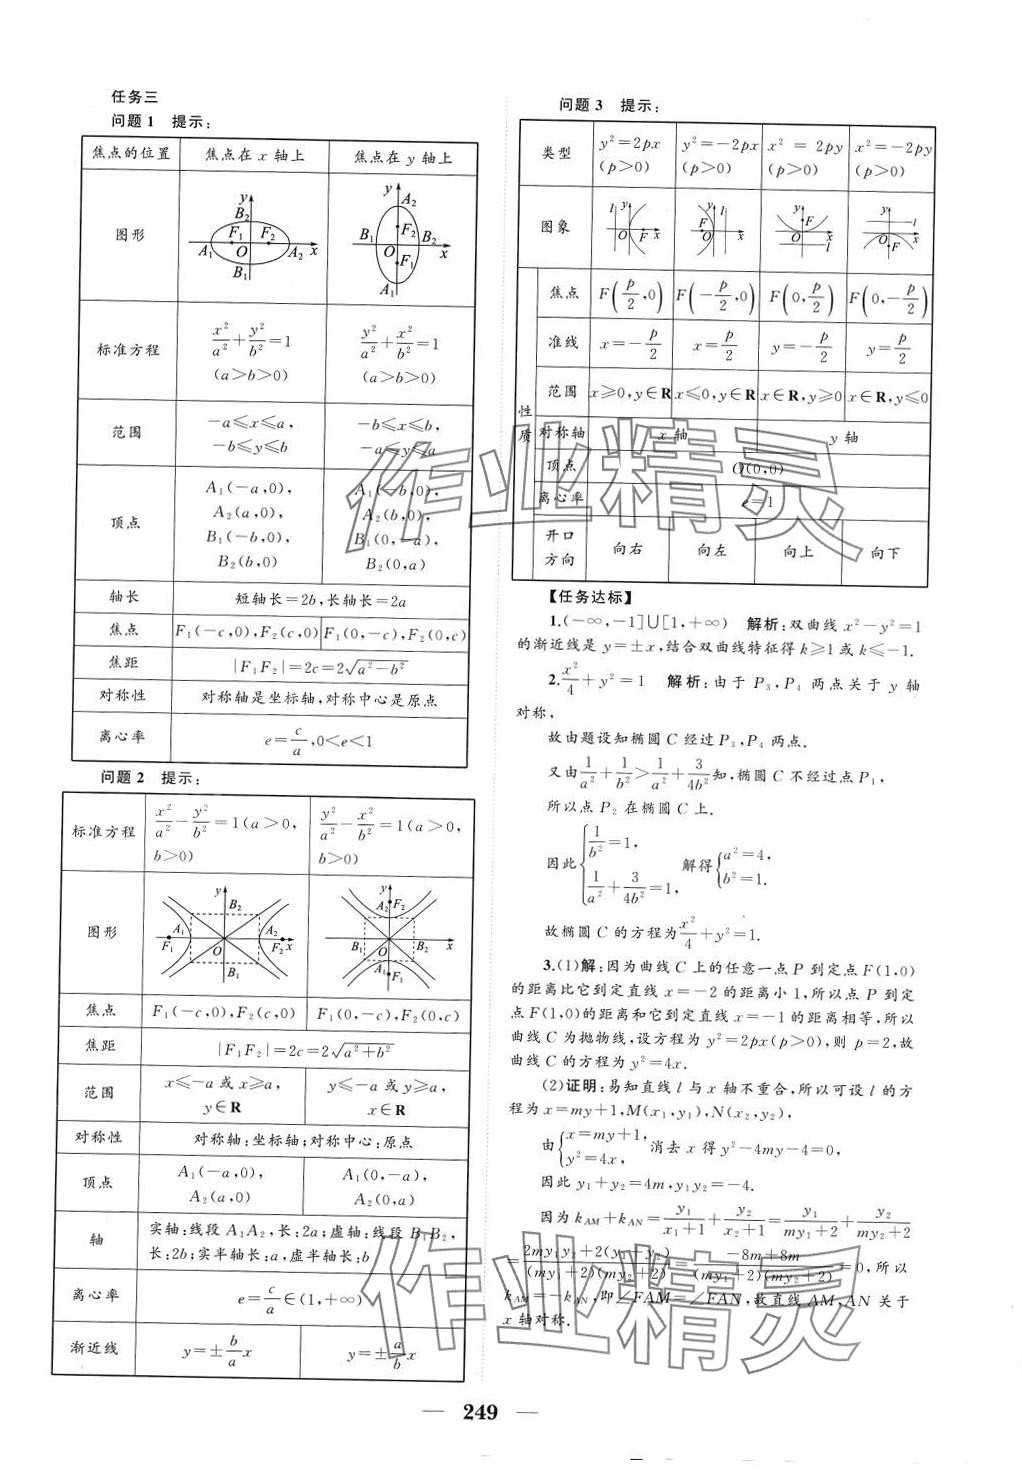 任务三
问题1 提示:
焦点的位置 焦点在 x 轴上 焦点在 y 轴上
图形
y B₂ A₁ F₁ O F₂ A₂ x B₁
y A₂ F₂ B₁ O B₂ x F₁ A₁
标准方程 x²/a²+y²/b²=1 (a>b>0) y²/a²+x²/b²=1 (a>b>0)
范围 -a≤x≤a, -b≤y≤b -b≤x≤b, -a≤y≤a
顶点 A₁(-a,0), A₁(-b,0),
A₂(a,0), A₂(b,0),
B₁(-b,0), B₁(0,-a),
B₂(b,0) B₂(0,a)
轴长 短轴长=2b,长轴长=2a
焦点 F₁(-c,0),F₂(c,0) F₁(0,-c),F₂(0,c)
焦距 |F₁F₂|=2c=2√(a²-b²)
对称性 对称轴是坐标轴,对称中心是原点
离心率 e=c/a,0<e<1
问题2 提示:
标准方程 x²/a²-y²/b²=1(a>0, b>0) y²/a²-x²/b²=1(a>0, b>0)
图形
y B₂ A₁ A₂ F₁ O F₂ x B₁
y A₂ F₂ B₁ O B₂ x A₁ F₁
焦点 F₁(-c,0),F₂(c,0) F₁(0,-c),F₂(0,c)
焦距 |F₁F₂|=2c=2√(a²+b²)
范围 x≤-a 或 x≥a, y∈R y≤-a 或 y≥a, x∈R
对称性 对称轴:坐标轴;对称中心:原点
顶点 A₁(-a,0), A₂(a,0) A₁(0,-a), A₂(0,a)
轴 实轴:线段 A₁A₂,长:2a;虚轴:线段 B₁B₂,
长:2b;实半轴长:a,虚半轴长:b
离心率 e=c/a∈(1,+∞)
渐近线 y=±(b/a)x y=±(a/b)x
问题3 提示:
类型 y²=2px (p>0) y²=-2px (p>0) x²=2py (p>0) x²=-2py (p>0)
图象
l y O F x
y l F O x
y F O x l
y l O F x
性质
焦点 F(p/2,0) F(-p/2,0) F(0,p/2) F(0,-p/2)
准线 x=-p/2 x=p/2 y=-p/2 y=p/2
范围 x≥0,y∈R x≤0,y∈R x∈R,y≥0 x∈R,y≤0
对称轴 x 轴 y 轴
顶点 O(0,0)
离心率 e=1
开口方向 向右 向左 向上 向下
【任务达标】
1.(-∞,-1]∪[1,+∞) 解析:双曲线 x²-y²=1
的渐近线是 y=±x,结合双曲线特征得 k≥1 或 k≤-1.
2.x²/4+y²=1 解析:由于 P₃,P₄ 两点关于 y 轴
对称,
故由题设知椭圆 C 经过 P₃,P₄ 两点.
又由1/a²+1/b²>1/a²+3/4b²知,椭圆 C 不经过点 P₁,
所以点 P₂ 在椭圆 C 上.
因此{1/b²=1, 1/a²+3/4b²=1, 解得{a²=4, b²=1.
故椭圆 C 的方程为x²/4+y²=1.
3.(1)解:因为曲线 C 上的任意一点 P 到定点 F(1,0)
的距离比它到定直线 x=-2 的距离小 1,所以点 P 到定
点 F(1,0)的距离和它到定直线 x=-1 的距离相等,所以
曲线 C 为抛物线,设方程为 y²=2px(p>0),则 p=2,故
曲线 C 的方程为 y²=4x.
(2)证明:易知直线 l 与 x 轴不重合,所以可设 l 的方
程为 x=my+1,M(x₁,y₁),N(x₂,y₂),
由{x=my+1, y²=4x, 消去 x 得 y²-4my-4=0,
因此 y₁+y₂=4m,y₁y₂=-4.
因为 k_AM+k_AN=y₁/(x₁+1)+y₂/(x₂+1)=y₁/(my₁+2)+y₂/(my₂+2)
=(2my₁y₂+2(y₁+y₂))/((my₁+2)(my₂+2))=(-8m+8m)/((my₁+2)(my₂+2))=0,所以
k_AM=-k_AN,即∠FAM=∠FAN,故直线 AM,AN 关于
x 轴对称.
— 249 —
作业精灵
作业精灵